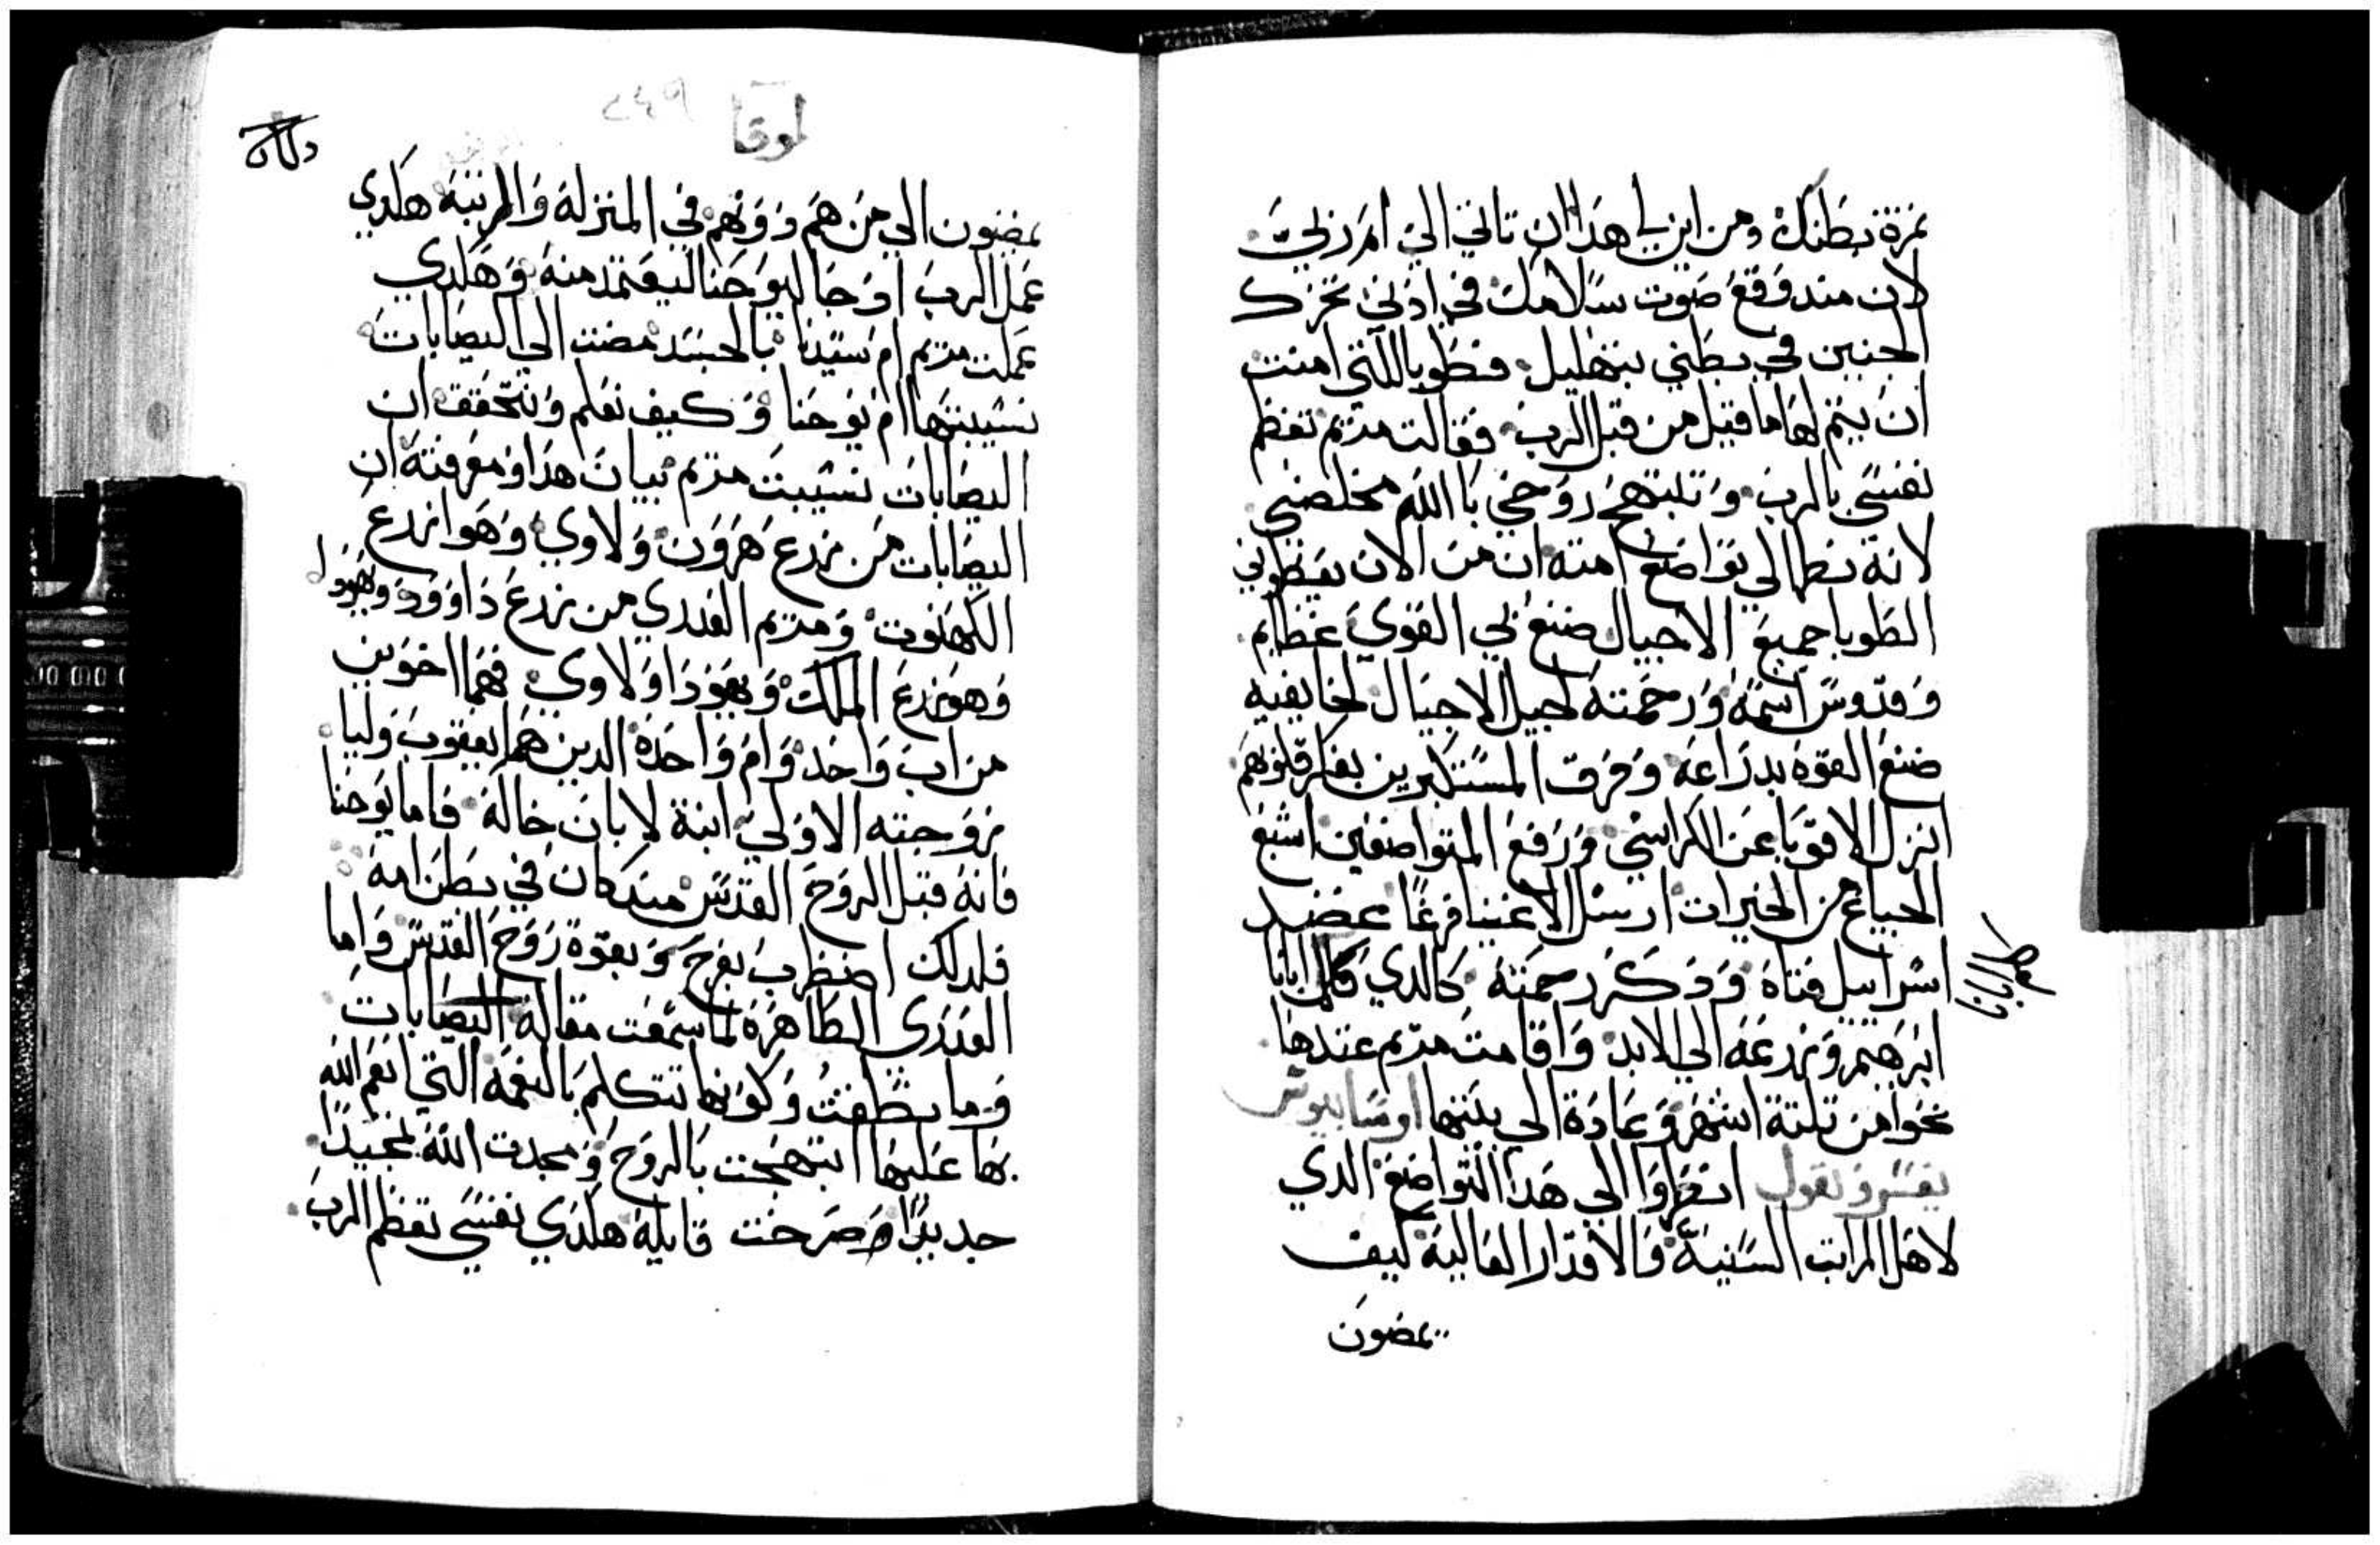 ثمرة بطنك ومن اين لي هدا ان تاتي الي ام ربي
لان مند وقع صوت سلامك في ادني تحرك
الجنين في بطني بتهليل فطوبا للتي امنت
ان يتم لها ما قيل من قبل الرب فقالت مريم تعظم
نفسي بالرب وتبتهج روحي بالله مخلصي
لانه نظر الي تواضع امته ان من الان يعطوني
الطوبا جميع الاجيال صنع بي القوي عظايم
وقدوس اسمه ورحمته لجيل الاجيال لخايفيه
صنع القوه بدراعه وفرق المستكبرين بفكر قلوبهم
انزل الاقويا عن الكراسي ورفع المتواضعين اشبع
الجياع من الخيرات ارسل الاغنيا فرغا عضد
اسراييل فتاه ودكر رحمته كالدي كلم ابانا
ابرهيم وزرعه الي الابد واقامت مريم عندها
نحوا من تلتة اشهر وعادة الي بيتها اوسابيوس
يفسر ويقول انضروا الي هدا التواضع الدي
لاهل المراتب السنيه والاقدار العاليه كيف
يمضون
لابانا
لوقا
٢٤٩
يمضون الي من هم دونهم في المنزله والمرتبه هكدي
عمل الرب اد جا ليوحنا ليعتمد منه وهكدي
عملت مريم ام سيدنا بالجسد مضت الي اليصابات
نسيبتها ام يوحنا وكيف نعلم ونتحقق ان
اليصابات نسيبت مريم بيان هدا ومعرفته ان
اليصابات من زرع هرون ولاوي وهوا زرع
الكهنوت ومريم العدري من زرع داوود ويهودا
وهو زرع الملك ويهودا ولاوي فهما اخوين
من اب واحد وام واحده الدين هم يعقوب وليا
زوجته الاولي ابنة لابان خاله فاما يوحنا
فانه قبل الروح القدس مند كان في بطن امه
فلدلك اضطرب بفرح وبقوة روح القدس واما
العدري الطاهره لما سمعت مقالة اليصابات
وما نطقت وكونها تتكلم بالنعمه التي انعم الله
بها عليها ابتهجت بالروح ومجدت الله تمجيدا
جديدا وصرخت قايله هكدي نفسي تعظم الرب